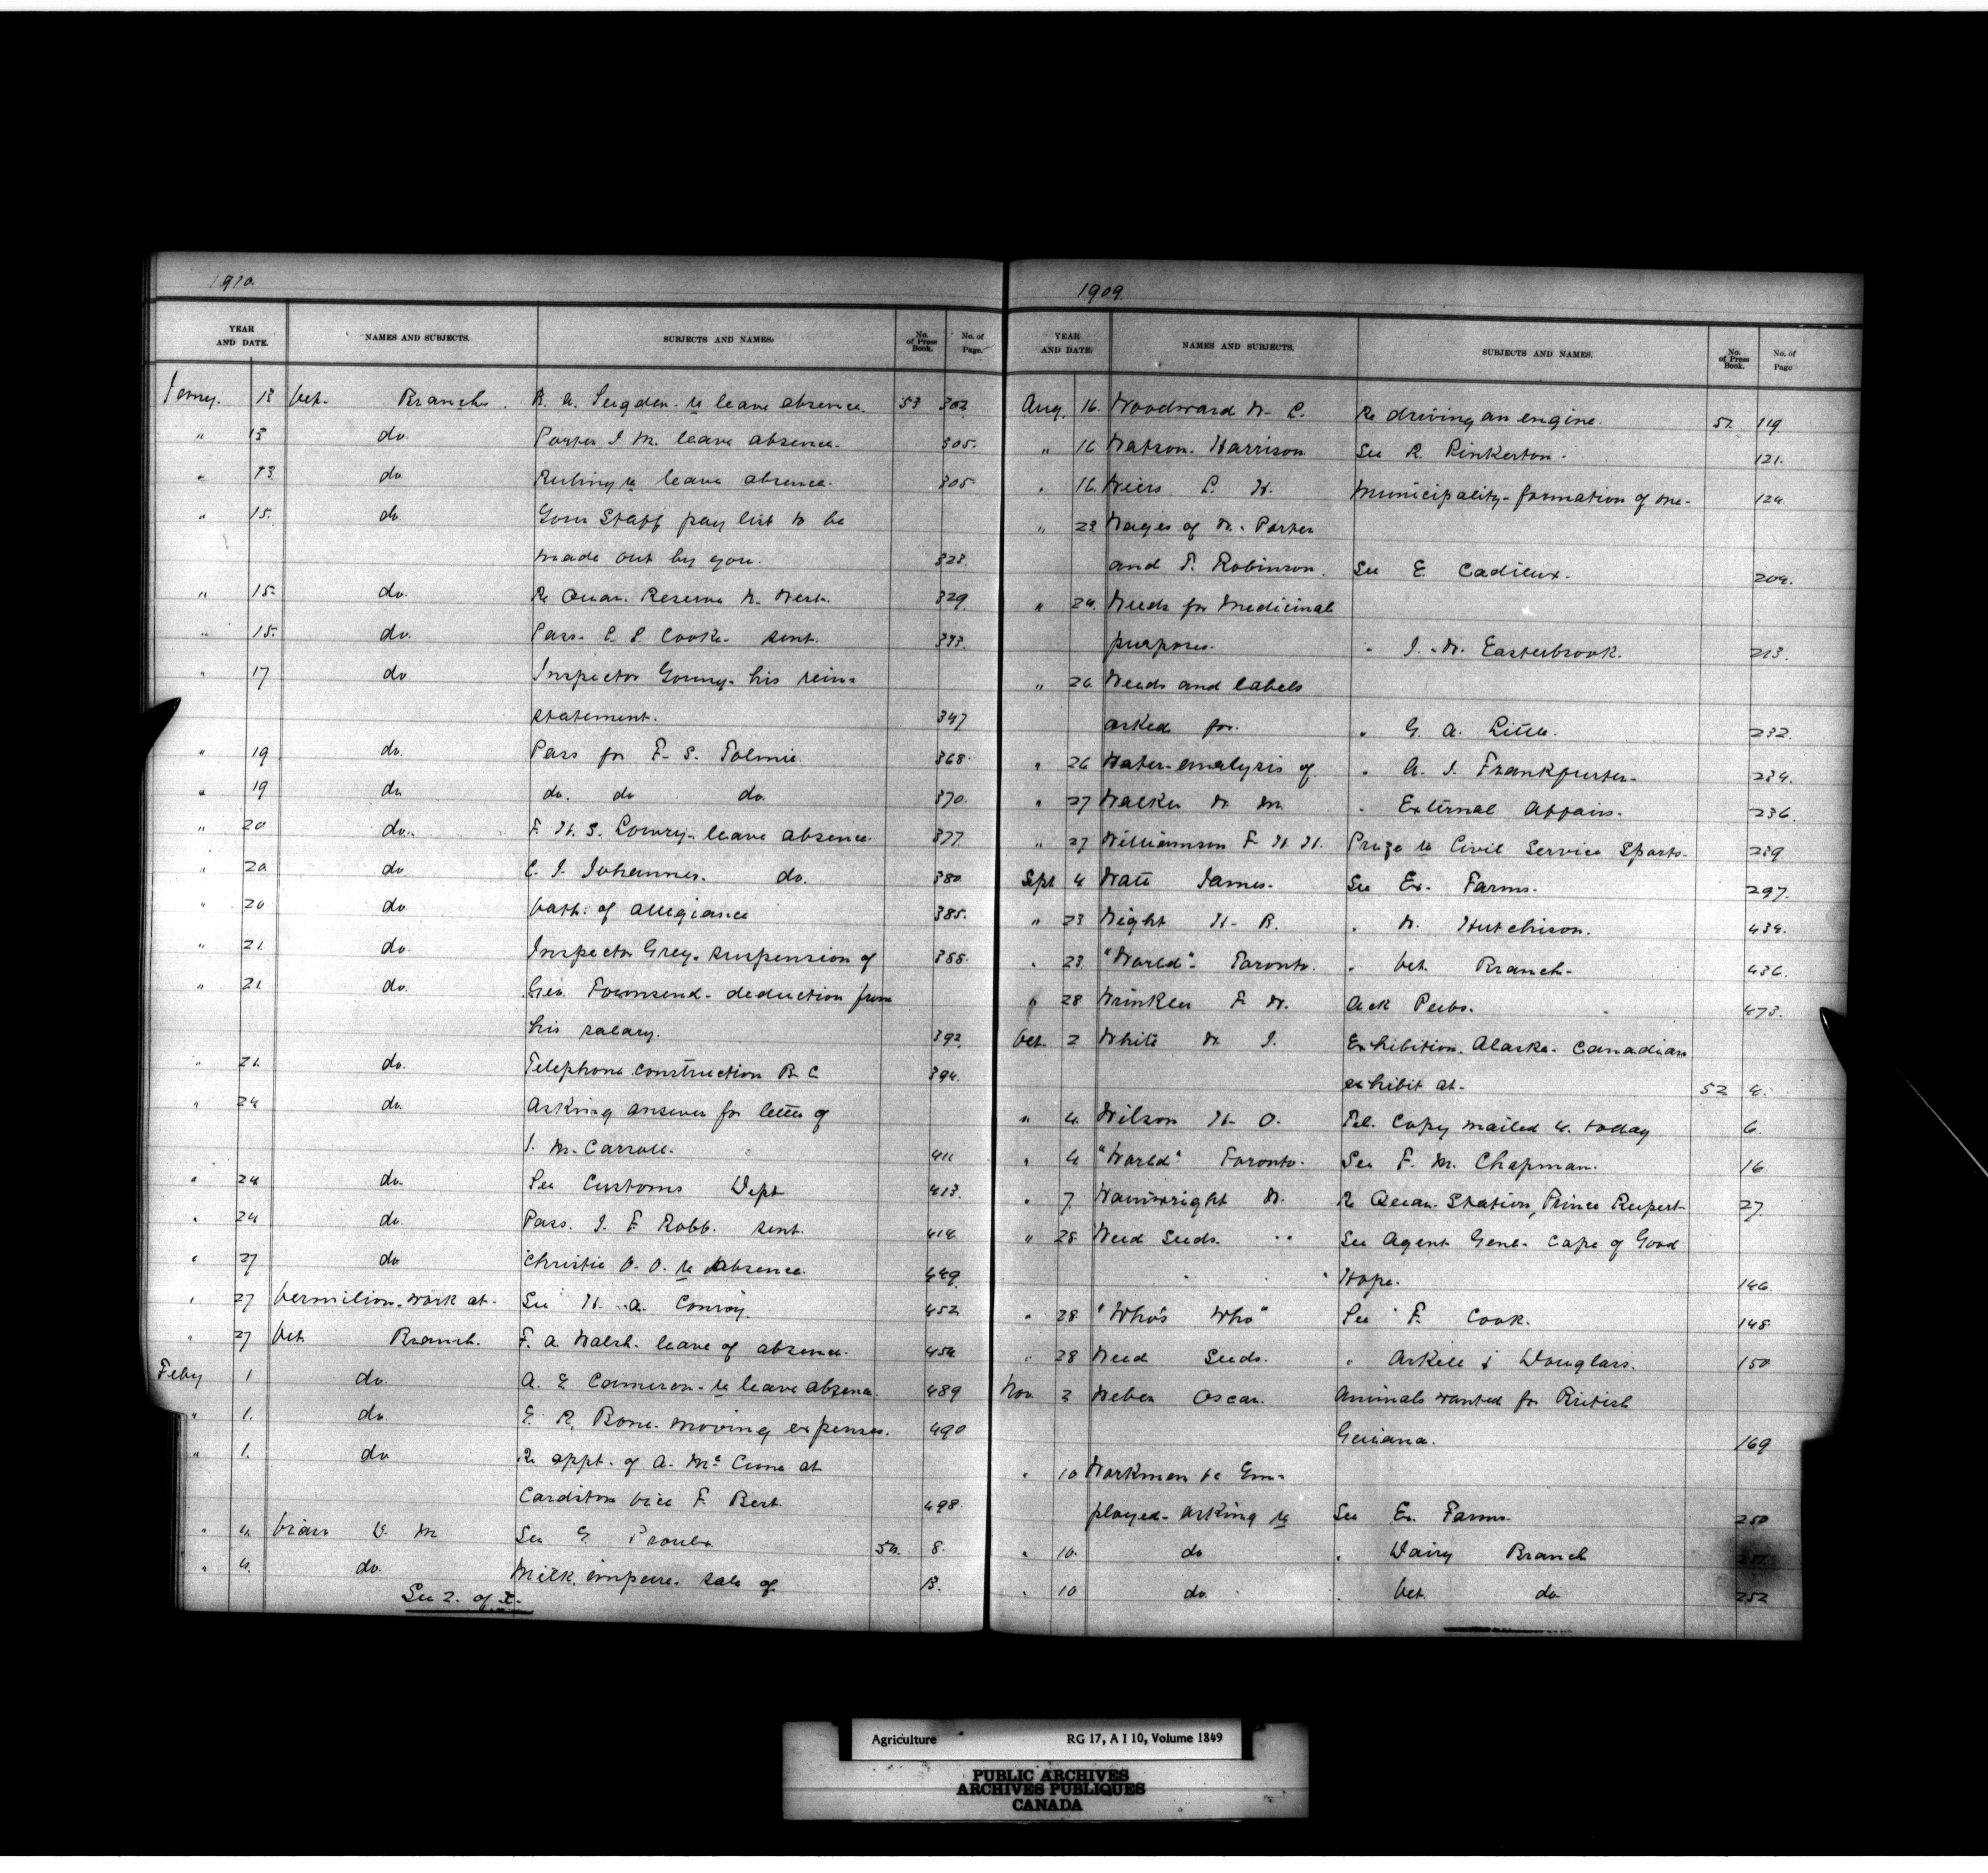 1910.
YEAR AND DATE. NAMES AND SUBJECTS. SUBJECTS AND NAMES. No. of Press Book. No. of Page.
Jany. 13 Vet. Branch. B. A. Sugden - re leave absence. 53 302
" 13 do. Porter J. M. leave absence. 305.
" 13 do re leave absence. 305
" 15. do. Staff pay list to be
made out by you. 323.
" 15. do. Re Quar. Reserve W. West. 329
" 15. do. Pass. Cooke - sent. 333.
" 17 do Inspector his rein-
statement. 347
" 19 do. Pass for F. S. Tolmie. 368.
" 19 do. do. do do. 370.
" 20 do. F. H. S. Lowry - leave absence 377
" 20 do. C. J. Johannes. do. 380
" 20 do. Oath of allegiance 385.
" 21 do. Inspector Grey - suspension of 388.
" 21 do. Geo. Townsend - deduction from
his salary. 392.
" 21. do. Telephone construction B. C. 394.
" 24 do. Asking answer for letter of
J. M. Carroll. 411
" 24 do. See Customs Dept 413.
" 24 do. Pass. J. F. Robb. sent. 414.
" 27 do Christie O. O. re absence. 449.
" 27 Vermilion. work at - See H. A. Conroy. 452
" 27 Vet. Branch. F. A. Walsh. leave of absence. 454
Feby 1 do. A. E. Cameron - re leave absence. 489
" 1. do. E. R. Bone. moving expenses. 490
" 1. do Re appt. of A. McCune at
Cardston vice F. Bert. 498.
" 4. D. M See G. Proulx 54. 8.
" 4. do. Milk, impure. sale of 13.
See 2. of
1909.
YEAR AND DATE. NAMES AND SUBJECTS. SUBJECTS AND NAMES. No. of Press Book. No. of Page
Aug. 16. Woodward W. C. Re driving an engine. 51. 119.
" 16 Watson. Harrison See R. Pinkerton. 121.
" 16. Weirs Municipality - formation of one - 124.
" 23 Wages of W. Porter
and T. Robinson. See E. Cadieux. 204.
" 24. Weeds for medicinal
purposes. " J. W. Easterbrook. 213.
" 26. Weeds and labels
asked for. " G. A. Little. 232.
" 26 Water - analysis of " A. J. Frankfurter - 234.
" 27 Walker W. M. " External Affairs. 236.
" 27 Williamson F. H. H. Prize re Civil Service Sports - 239.
Sept 4 Watt James. See Ex. Farms. 297.
" 23 Wight H. B. " W. Hutchison. 434.
" 23 "World". Toronto. " Vet. Branch - 436.
" 28 Winkler F. W. Ack Pubs. 473.
Oct. 2 White W J. Exhibition. Alaska. Canadian
exhibit at - 52 4.
" 4. Wilson H. O. Tel. Copy mailed u. today 6.
" 4 "World" Toronto. See F. M. Chapman. 16
" 7 Wainwright W. Re Quar. Station, Prince Rupert 27.
" 28 Weed Seeds. See Agent Genl. Cape of Good
Hope. 146
" 28 "Who's Who" See F. Cook. 148
" 28 Weed Seeds. " Arkell & Douglass. 150
Nov. 3 Weber Oscar. Animals wanted for British
Guiana. 169
" 10 Workmen to Em-
ployed - asking re See Ex. Farms. 250
" 10. do " Dairy Branch 251.
" 10 do. " Vet. do 252
Agriculture RG 17, A I 10, Volume 1849
PUBLIC ARCHIVES
ARCHIVES PUBLIQUES
CANADA